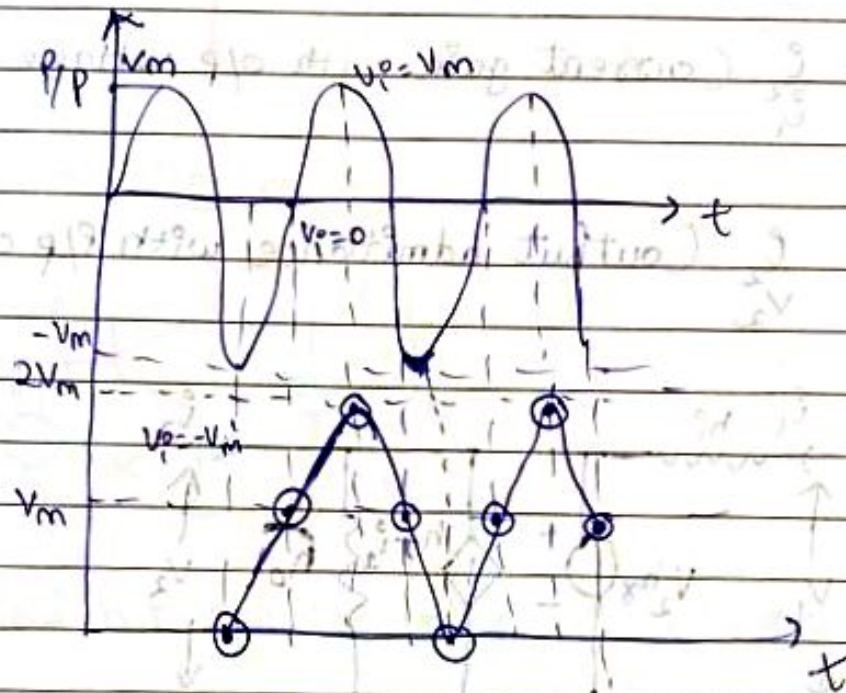 P/P Vm Vi=Vm
t
Vi=0
-Vm
2Vm
Vi=-Vm
Vm
t